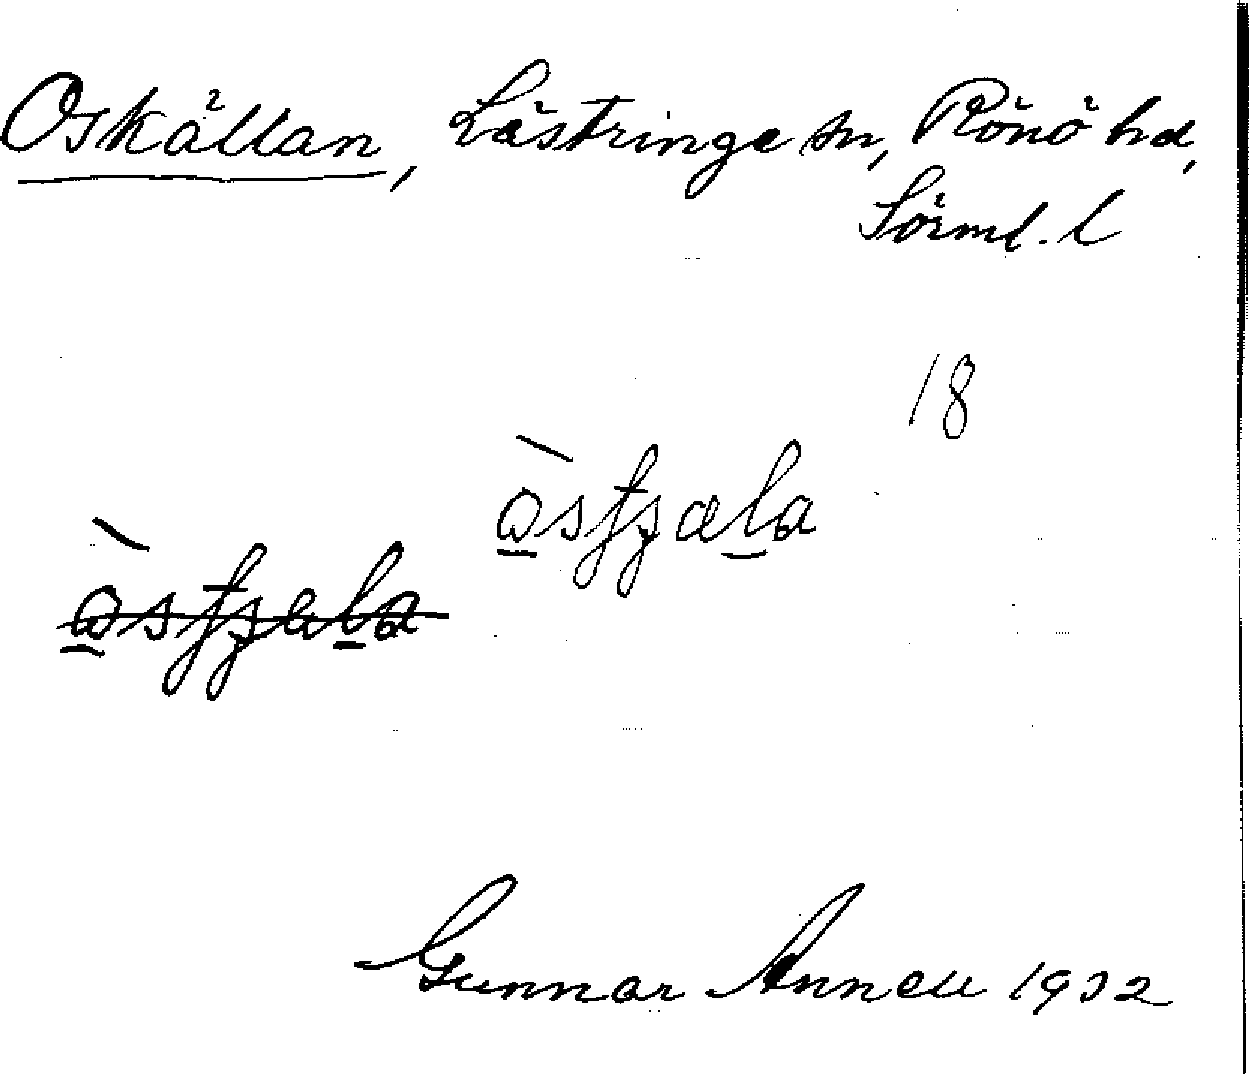 Oskällan, Lästringe sn, Rönö hd,
Sörml. l
18
Gunnar Annell 1932